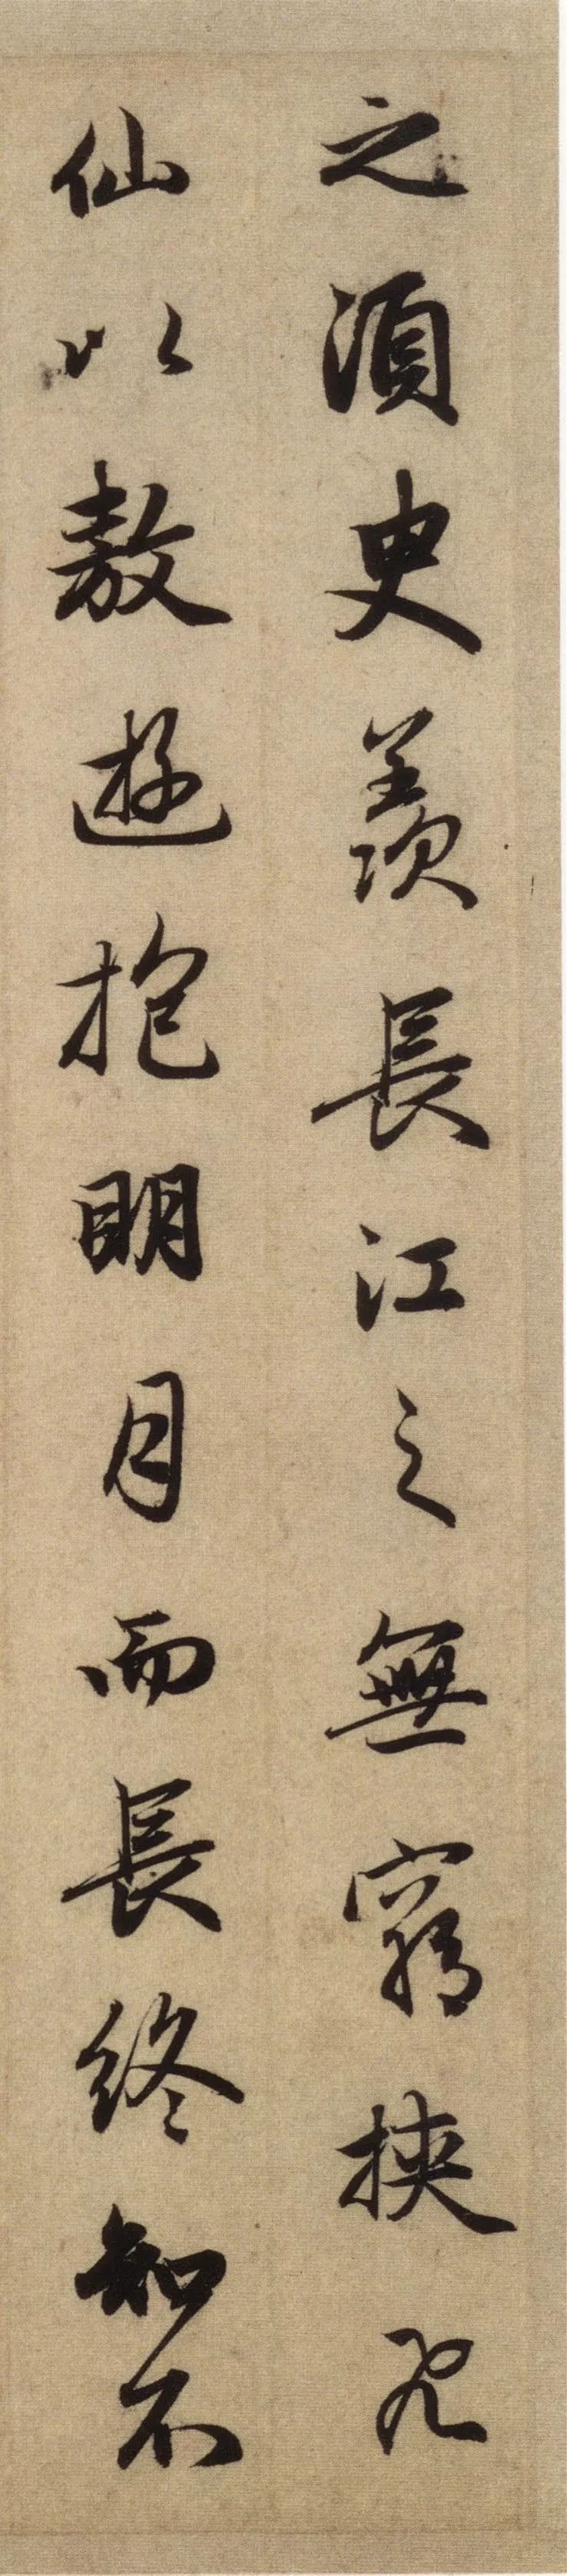 之須臾羨長江之無窮挾飛
仙以敖遊抱明月而長終知不